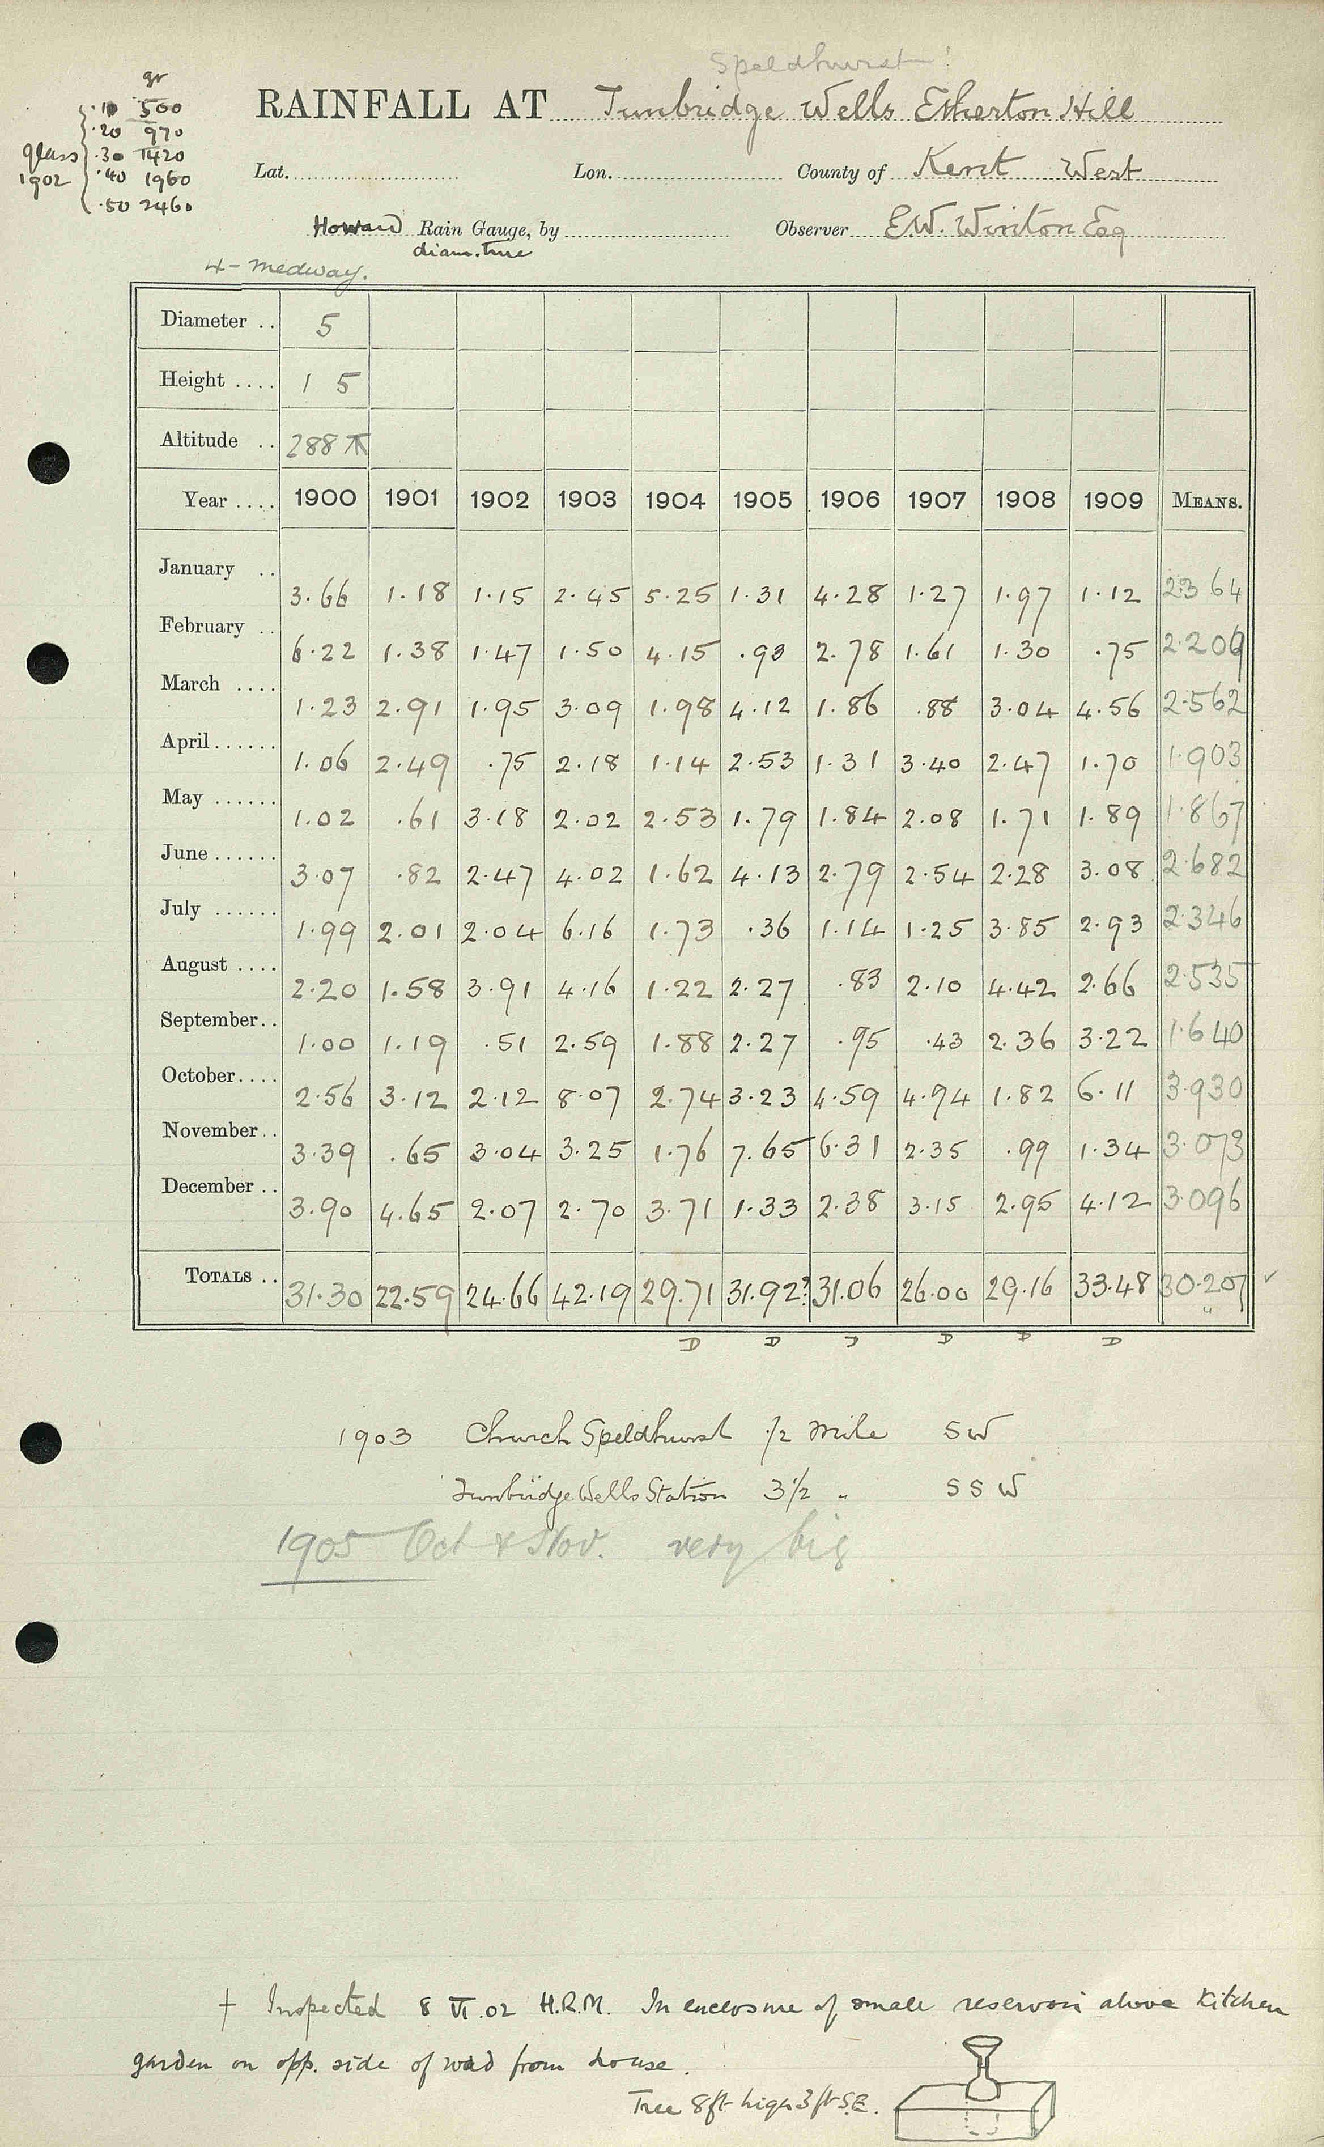 Speldhurst!
gr
.10 500
.20 970
glass .30 1420
1902 .40 1960
.50 2460
RAINFALL AT Tunbridge Wells Etherton Hill
Lat. Lon. County of Kent West
Howard Rain Gauge, by Observer E.W. Winton Esq
diam. true
4- Medway.
Diameter .. 5
Height .... 1 5
Altitude .. 288
Year .... 1900 1901 1902 1903 1904 1905 1906 1907 1908 1909 MEANS.
January .. 3.66 1.18 1.15 2.45 5.25 1.31 4.28 1.27 1.97 1.12 2.364
February .. 6.22 1.38 1.47 1.50 4.15 .93 2.78 1.61 1.30 .75 2.209
March .... 1.23 2.91 1.95 3.09 1.98 4.12 1.86 .88 3.04 4.56 2.562
April...... 1.06 2.49 .75 2.18 1.14 2.53 1.31 3.40 2.47 1.70 1.903
May ...... 1.02 .61 3.18 2.02 2.53 1.79 1.84 2.08 1.71 1.89 1.867
June...... 3.07 .82 2.47 4.02 1.62 4.13 2.79 2.54 2.28 3.08 2.682
July ...... 1.99 2.01 2.04 6.16 1.73 .36 1.14 1.25 3.85 2.93 2.346
August .... 2.20 1.58 3.91 4.16 1.22 2.27 .83 2.10 4.42 2.66 2.535
September.. 1.00 1.19 .51 2.59 1.88 2.27 .95 .43 2.36 3.22 1.640
October.... 2.56 3.12 2.12 8.07 2.74 3.23 4.59 4.94 1.82 6.11 3.930
November.. 3.39 .65 3.04 3.25 1.76 7.65 6.31 2.35 .99 1.34 3.073
December .. 3.90 4.65 2.07 2.70 3.71 1.33 2.38 3.15 2.95 4.12 3.096
TOTALS .. 31.30 22.59 24.66 42.19 29.71 31.92? 31.06 26.00 29.16 33.48 30.207 ✓
D D D D D D
1903 Church Speldhurst 1/2 mile SW
Tunbridge Wells Station 3 1/2 " SSW
1905 Oct & Nov. very big
† Inspected 8 VI.02 H.R.M. In enclosure of small reservoir above Kitchen
garden on opp. side of road from house.
Tree 8ft high 3ft S.E.